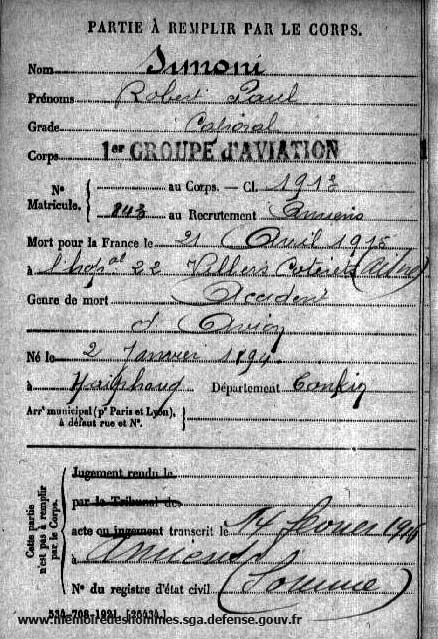 PARTIE À REMPLIR PAR LE CORPS.
Nom Simoni
Prénoms Robert Paul
Grade Caporal
Corps 1er GROUPE d'AVIATION
Nº Matricule. { au Corps. — Cl. 1913
843 au Recrutement Amiens
Mort pour la France le 21 Avril 1915
à l'hopal 22 Villers Coterets (Aisne)
Genre de mort Accident
d'Avion
Né le 2 Janvier 1894
à Haïphong Département Tonkin
Arrt municipal (pr Paris et Lyon),
à défaut rue et Nº.
Cette partie n'est pas à remplir par le Corps.
Jugement rendu le
par le Tribunal de
acte ou jugement transcrit le 14 février 1916
à Amiens
Nº du registre d'état civil (Somme)
534-708-1921. [26434.]
www.memoiredeshommes.sga.defense.gouv.fr